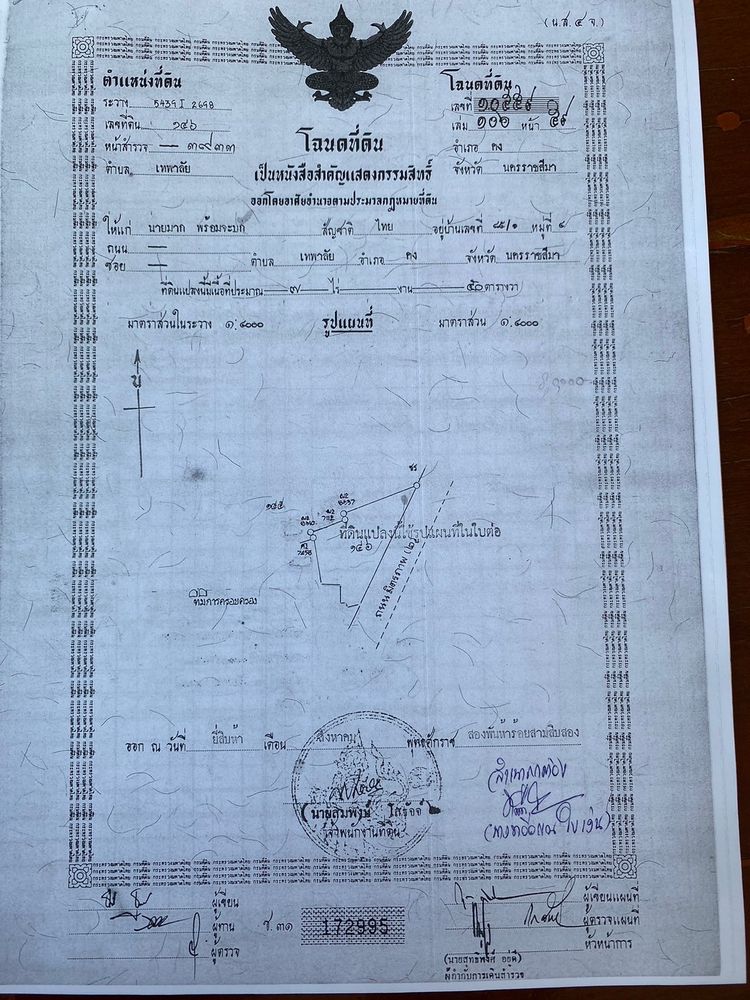 (น.ส.๔ จ.)
ตำแหน่งที่ดิน
ระวาง 5439 I 2698
เลขที่ดิน ๑๔๖
หน้าสำรวจ ๓๙๓๓
ตำบล เทพาลัย
โฉนดที่ดิน
เลขที่
เล่ม ๑๐๖ หน้า
อำเภอ คง
จังหวัด นครราชสีมา
โฉนดที่ดิน
เป็นหนังสือสำคัญแสดงกรรมสิทธิ์
ออกโดยอาศัยอำนาจตามประมวลกฎหมายที่ดิน
ให้แก่ นายมาก พร้อมจะบก สัญชาติ ไทย อยู่บ้านเลขที่ ๘๕/๑ หมู่ที่ ๔
ถนน —
ซอย — ตำบล เทพาลัย อำเภอ คง จังหวัด นครราชสีมา
ที่ดินแปลงนี้มีเนื้อที่ประมาณ ๗ ไร่ — งาน ๕๐ ตารางวา
มาตราส่วนในระวาง ๑:๔๐๐๐ รูปแผนที่ มาตราส่วน ๑:๔๐๐๐
น
๑๔๕
ที่ดินแปลงนี้ใช้รูปแผนที่ในใบต่อ
๑๔๖
ถนนมิตรภาพ (๒)
ที่มีการครอบครอง
ออก ณ วันที่ ยี่สิบห้า เดือน สิงหาคม พุทธศักราช สองพันห้าร้อยสามสิบสอง
(นายสมพงษ์ โสรัจจ์)
เจ้าพนักงานที่ดิน
สำเนาถูกต้อง
ผู้เขียน
ผู้ทาน
ผู้ตรวจ
ช.๓๑
172995
ผู้เขียนแผนที่
ผู้ตรวจแผนที่
หัวหน้าการ
ผู้กำกับการเดินสำรวจ